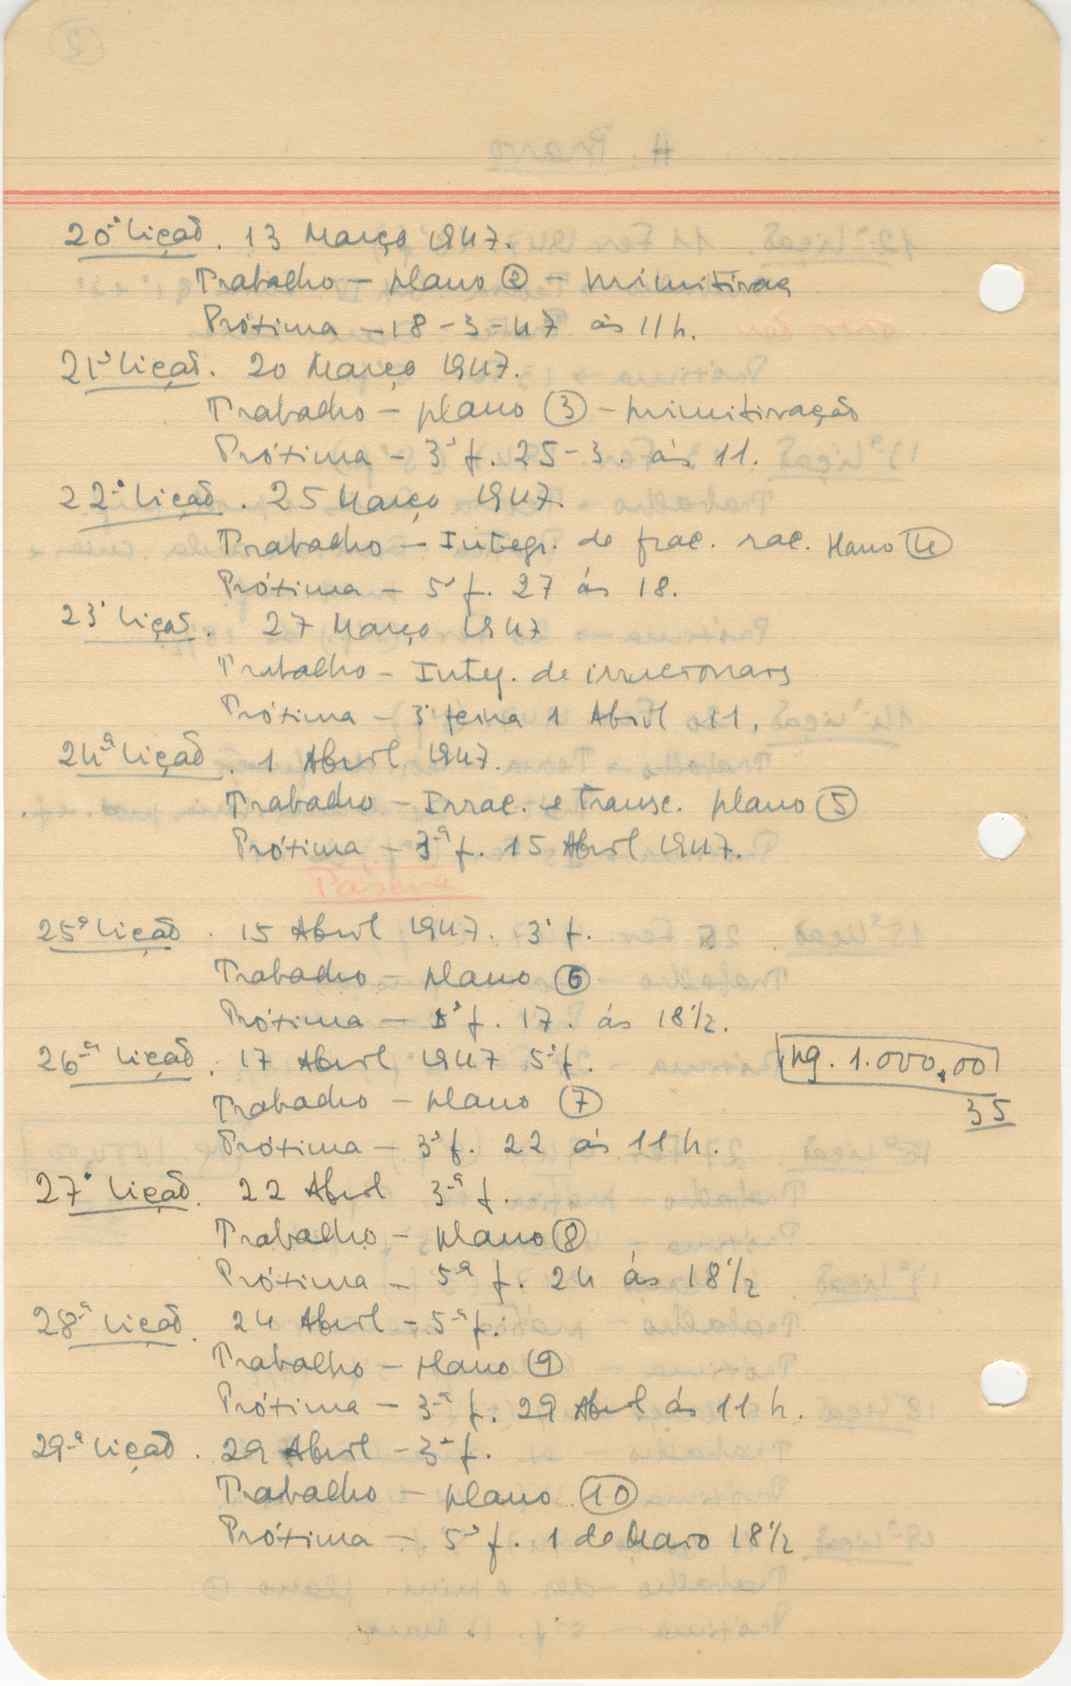 20ª Lição. 13 Março 1947.
Trabalho – plano ② – primitivas
Próxima – 18-3-47 às 11 h.
21ª Lição. 20 Março 1947.
Trabalho – plano ③ – primitivação
Próxima – 3ª f. 25-3. às 11.
22ª Lição. 25 Março 1947.
Trabalho – Integr. de frac. rac. plano ④
Próxima – 5ª f. 27 às 18.
23ª Lição. 27 Março 1947
Trabalho – Integ. de irracionais
Próxima – 3ª feira 1 Abril 11.
24ª Lição. 1 Abril 1947.
Trabalho – Irrac. e transc. plano ⑤
Próxima – 3ª f. 15 Abril 1947.
Páscoa
25ª Lição. 15 Abril 1947. 3ª f.
Trabalho – plano ⑥
Próxima – 5ª f. 17. às 18 1/2.
26ª Lição. 17 Abril 1947 5ª f.
pg. 1.000,00
Trabalho – plano ⑦
35
Próxima – 3ª f. 22 às 11 h.
27ª Lição. 22 Abril 3ª f.
Trabalho – plano ⑧
Próxima – 5ª f. 24 às 18 1/2
28ª Lição. 24 Abril – 5ª f.
Trabalho – plano ⑨
Próxima – 3ª f. 29 Abril às 11 h.
29ª Lição. 29 Abril – 3ª f.
Trabalho – plano ⑩
Próxima – 5ª f. 1 de Maio 18 1/2